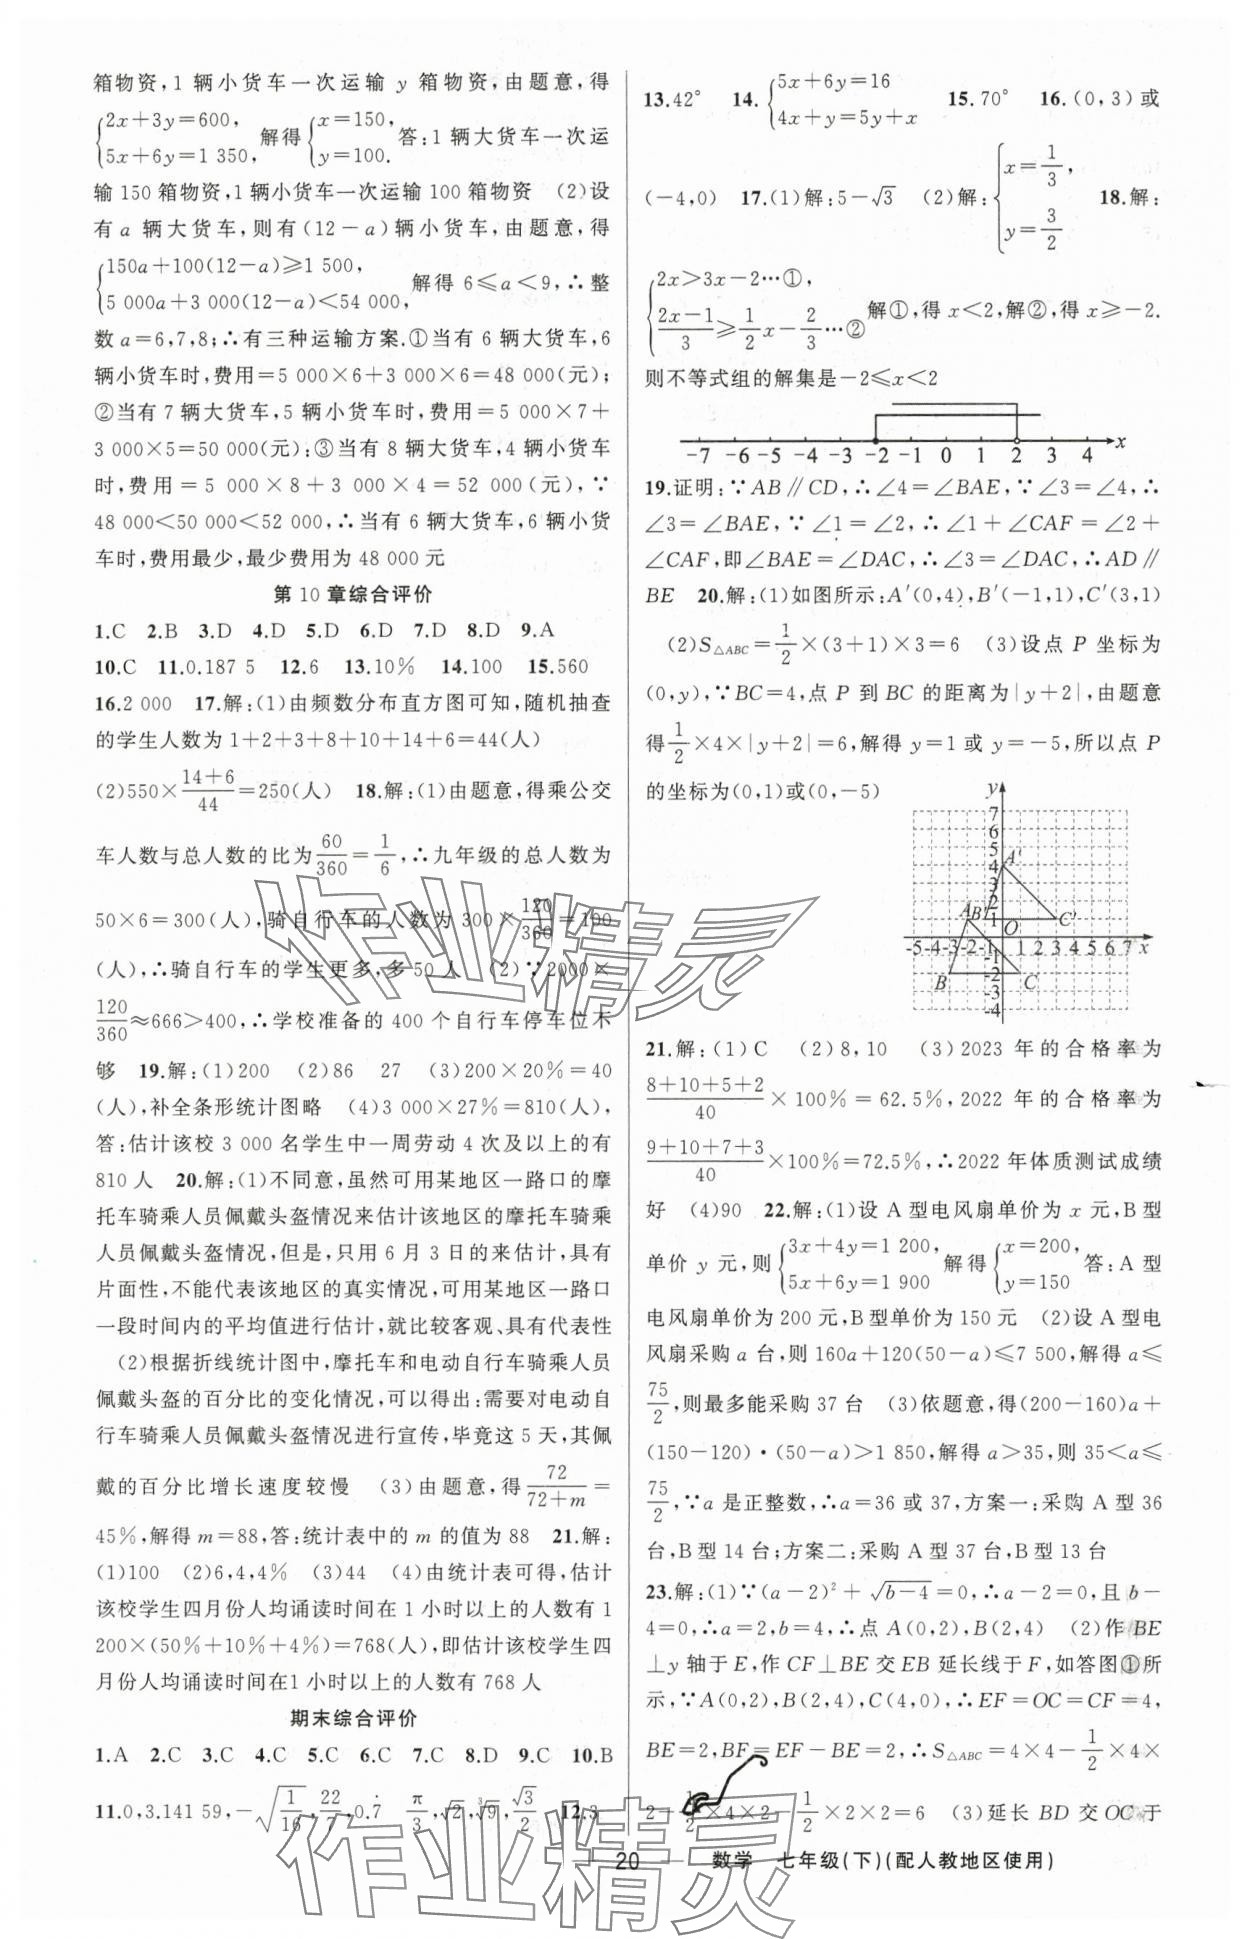 箱物资,1 辆小货车一次运输 y 箱物资,由题意,得
{2x+3y=600, 5x+6y=1 350, 解得{x=150, y=100. 答:1 辆大货车一次运
输 150 箱物资,1 辆小货车一次运输 100 箱物资 (2)设
有 a 辆大货车,则有(12-a)辆小货车,由题意,得
{150a+100(12-a)≥1 500, 5 000a+3 000(12-a)<54 000, 解得 6≤a<9,∴整
数 a=6,7,8;∴有三种运输方案.①当有 6 辆大货车,6
辆小货车时,费用=5 000×6+3 000×6=48 000(元);
②当有 7 辆大货车,5 辆小货车时,费用=5 000×7+
3 000×5=50 000(元);③当有 8 辆大货车,4 辆小货车
时,费用=5 000×8+3 000×4=52 000(元),∵
48 000<50 000<52 000,∴当有 6 辆大货车,6 辆小货
车时,费用最少,最少费用为 48 000 元
第 10 章综合评价
1.C 2.B 3.D 4.D 5.D 6.D 7.D 8.D 9.A
10.C 11.0.187 5 12.6 13.10% 14.100 15.560
16.2 000 17.解:(1)由频数分布直方图可知,随机抽查
的学生人数为 1+2+3+8+10+14+6=44(人)
(2)550×(14+6)/44=250(人) 18.解:(1)由题意,得乘公交
车人数与总人数的比为60/360=1/6,∴九年级的总人数为
50×6=300(人),骑自行车的人数为 300×120/360=100
(人),∴骑自行车的学生更多,多 50 人 (2)∵2000×
120/360≈666>400,∴学校准备的 400 个自行车停车位不
够 19.解:(1)200 (2)86 27 (3)200×20%=40
(人),补全条形统计图略 (4)3 000×27%=810(人),
答:估计该校 3 000 名学生中一周劳动 4 次及以上的有
810 人 20.解:(1)不同意,虽然可用某地区一路口的摩
托车骑乘人员佩戴头盔情况来估计该地区的摩托车骑乘
人员佩戴头盔情况,但是,只用 6 月 3 日的来估计,具有
片面性,不能代表该地区的真实情况,可用某地区一路口
一段时间内的平均值进行估计,就比较客观、具有代表性
(2)根据折线统计图中,摩托车和电动自行车骑乘人员
佩戴头盔的百分比的变化情况,可以得出:需要对电动自
行车骑乘人员佩戴头盔情况进行宣传,毕竟这 5 天,其佩
戴的百分比增长速度较慢 (3)由题意,得72/(72+m)=
45%,解得 m=88,答:统计表中的 m 的值为 88 21.解:
(1)100 (2)6,4,4% (3)44 (4)由统计表可得,估计
该校学生四月份人均诵读时间在 1 小时以上的人数有 1
200×(50%+10%+4%)=768(人),即估计该校学生四
月份人均诵读时间在1 小时以上的人数有 768 人
期末综合评价
1.A 2.C 3.C 4.C 5.C 6.C 7.C 8.D 9.C 10.B
11.0,3.141 59,-√(1/16),22/7,0.7̇ π/3,√2,∛9,√3/2 12.3
13.42° 14.{5x+6y=16 4x+y=5y+x 15.70° 16.(0,3)或
(-4,0) 17.(1)解:5-√3 (2)解:{x=1/3, y=3/2 18.解:
{2x>3x-2…①, (2x-1)/3≥1/2x-2/3…② 解①,得 x<2,解②,得 x≥-2.
则不等式组的解集是-2≤x<2
-7 -6 -5 -4 -3 -2 -1 0 1 2 3 4 x
19.证明:∵AB∥CD,∴∠4=∠BAE,∵∠3=∠4,∴
∠3=∠BAE,∵∠1=∠2,∴∠1+∠CAF=∠2+
∠CAF,即∠BAE=∠DAC,∴∠3=∠DAC,∴AD∥
BE 20.解:(1)如图所示:A′(0,4),B′(-1,1),C′(3,1)
(2)S△ABC=1/2×(3+1)×3=6 (3)设点 P 坐标为
(0,y),∵BC=4,点 P 到 BC 的距离为|y+2|,由题意
得1/2×4×|y+2|=6,解得 y=1 或 y=-5,所以点 P
的坐标为(0,1)或(0,-5)
y
7
6
5
4 A′
3
2
A B′ 1 C′
O
-5 -4 -3 -2 -1 1 2 3 4 5 6 7 x
-1
B -2 C
-3
-4
21.解:(1)C (2)8,10 (3)2023 年的合格率为
(8+10+5+2)/40×100%=62.5%,2022 年的合格率为
(9+10+7+3)/40×100%=72.5%,∴2022 年体质测试成绩
好 (4)90 22.解:(1)设 A 型电风扇单价为 x 元,B型
单价 y 元,则{3x+4y=1 200, 5x+6y=1 900 解得{x=200, y=150 答:A 型
电风扇单价为 200 元,B型单价为 150 元 (2)设 A 型电
风扇采购 a 台,则 160a+120(50-a)≤7 500,解得 a≤
75/2,则最多能采购 37 台 (3)依题意,得(200-160)a+
(150-120)·(50-a)>1 850,解得 a>35,则 35<a≤
75/2,∵a 是正整数,∴a=36 或 37,方案一:采购 A 型 36
台,B型 14 台;方案二:采购 A型 37 台,B型 13 台
23.解:(1)∵(a-2)²+√(b-4)=0,∴a-2=0,且 b-
4=0,∴a=2,b=4,∴点 A(0,2),B(2,4) (2)作 BE
⊥y 轴于 E,作 CF⊥BE 交 EB 延长线于 F,如答图①所
示,∵A(0,2),B(2,4),C(4,0),∴EF=OC=CF=4,
BE=2,BF=EF-BE=2,∴S△ABC=4×4-1/2×4×
2-1/2×4×2-1/2×2×2=6 (3)延长 BD 交 OC 于
20 数学 七年级(下)(配人教地区使用)
作业精灵
作业精灵